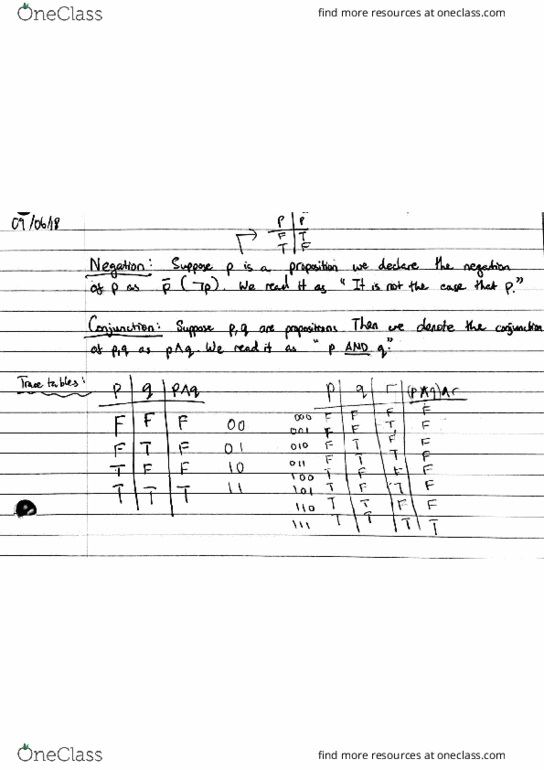 OneClass find more resources at oneclass.com
09/06/18
p | p̄
F | T
T | F
Negation: Suppose p is a proposition we declare the negation
of p as p̄ (¬p). We read it as "It is not the case that p."
Conjunction: Suppose p,q are propositions. Then we denote the conjunction
of p,q as p∧q. We read it as "p AND q."
Trace tables:
p | q | p∧q
F | F | F 00
F | T | F 01
T | F | F 10
T | T | T 11
p | q | r | (p∧q)∧r
000 F | F | F | F
001 F | F | T | F
010 F | T | F | F
011 F | T | T | F
100 T | F | F | F
101 T | F | T | F
110 T | T | F | F
111 T | T | T | T
OneClass find more resources at oneclass.com